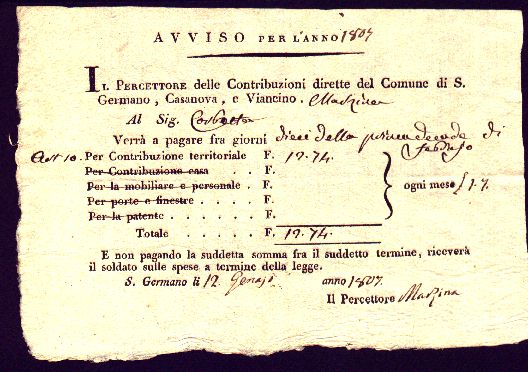 AVVISO PER L'ANNO 1807
IL PERCETTORE delle Contribuzioni dirette del Comune di S.
Germano, Casanova, e Viancino.
Al Sig.
Verrà a pagare fra giorni dieci della prima decade di
Febrajo
Art 10. Per Contribuzione territoriale F. 12.74.
Per Contribuzione casa . . F.
Per la mobiliare e personale . F.
Per porte e finestre . . . . F.
Per la patente . . . . . . F.
ogni mese £ 1.7.
Totale . . . . . F. 12.74.
E non pagando la suddetta somma fra il suddetto termine, riceverà
il soldato sulle spese a termine della legge.
S. Germano li 12. Genajo anno 1807.
Il Percettore